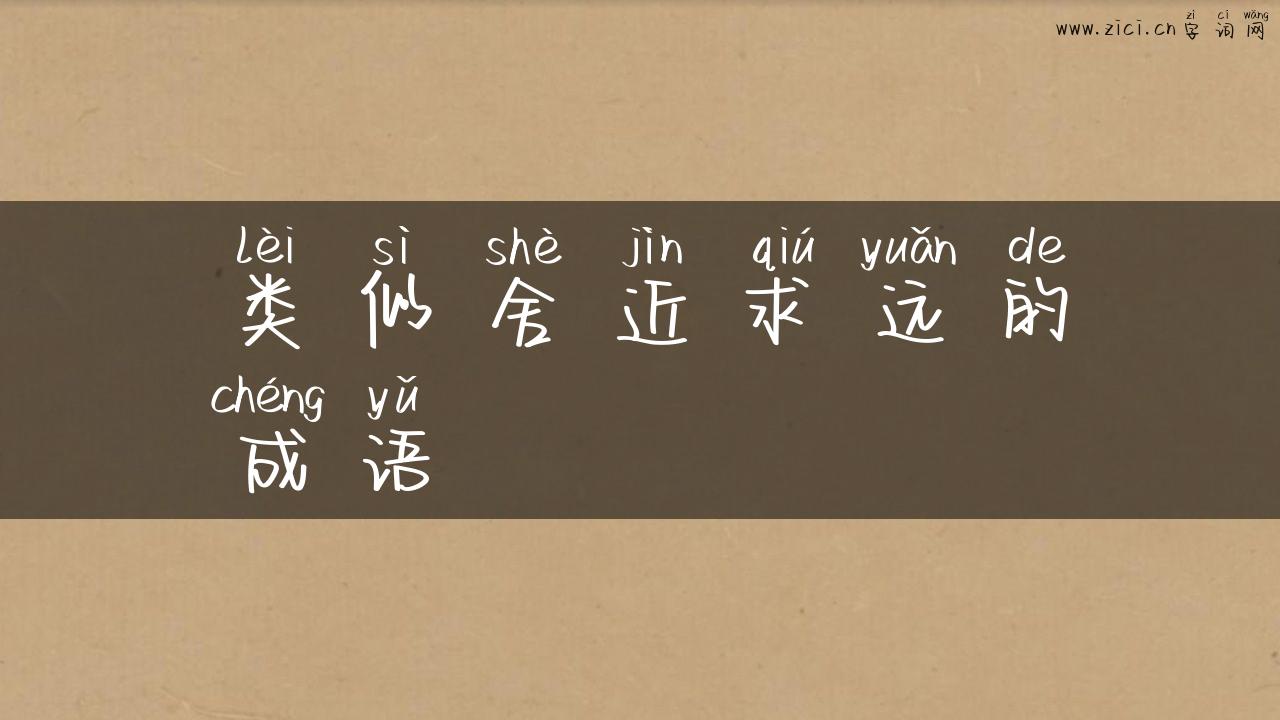 zì cí wǎng
www.zici.cn 字词网
lèi sì shè jìn qiú yuǎn de
类似舍近求远的
chéng yǔ
成语